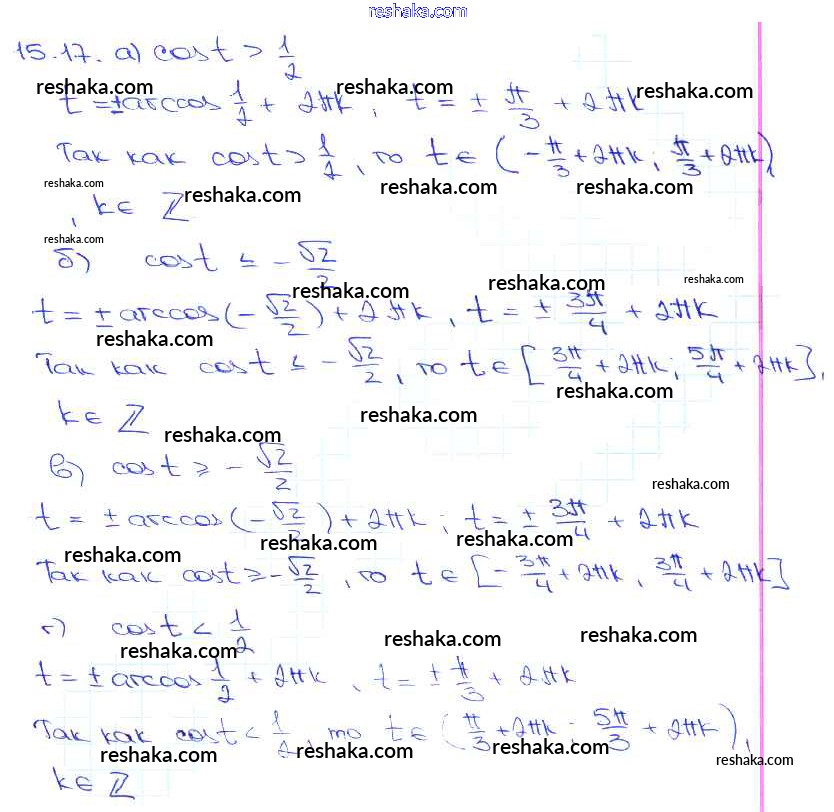 reshaka.com
15.17. а) cos t > 1/2
reshaka.com reshaka.com reshaka.com
t = ± arccos 1/2 + 2πk, t = ± π/3 + 2πk
Так как cos t > 1/2, то t ∈ (-π/3 + 2πk; π/3 + 2πk)
reshaka.com reshaka.com reshaka.com
, k ∈ ℤ
reshaka.com
б) cos t ≤ -√2/2
reshaka.com reshaka.com
t = ± arccos(-√2/2) + 2πk, t = ± 3π/4 + 2πk
reshaka.com
Так как cos t ≤ -√2/2, то t ∈ [3π/4 + 2πk; 5π/4 + 2πk],
reshaka.com
k ∈ ℤ
reshaka.com reshaka.com
в) cos t ≥ -√2/2
reshaka.com
t = ± arccos(-√2/2) + 2πk; t = ± 3π/4 + 2πk
reshaka.com reshaka.com reshaka.com
Так как cos t ≥ -√2/2, то t ∈ [-3π/4 + 2πk, 3π/4 + 2πk]
г) cos t < 1/2
reshaka.com reshaka.com reshaka.com
t = ± arccos 1/2 + 2πk, t = ± π/3 + 2πk
Так как cos t < 1/2, то t ∈ (π/3 + 2πk; 5π/3 + 2πk),
reshaka.com reshaka.com reshaka.com
k ∈ ℤ